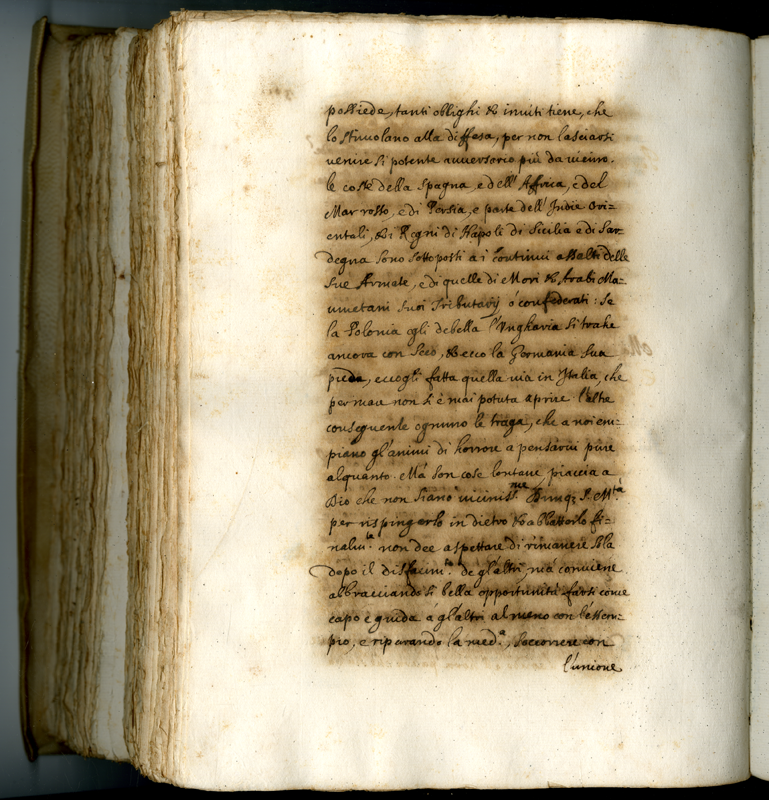 possiede, tanti oblighi & inuiti tiene, che
lo stimolano alla diffesa, per non lasciarsi
uenire si potente auuersario più da uicino.
le coste della Spagna, e dell' Affrica, e del
Mar rosso, e di Persia, e parte dell' Indie Ori=
entali, & i Regni di Napoli di Sicilia e di Sar=
degna sono sottoposti a i continui assalti delle
sue Armate, e di quelle di Mori & Arabi Ma=
umetani suoi Tributarij ò confederati: se
la Polonia egli debella l'Ungharia si trahe
ancora con seco, & ecco la Germania sua
preda, eccogli fatta quella uia in Italia, che
per mare non si è mai potuta aprire. l'altre
conseguente ognuno le traga, che a noi em=
piano gl'animi di horrore a pensarui pure
alquanto. Mà son cose lontane, piaccia a
Dio che non siano uiciniss.me Dunq; S. M.tà
per rispingerlo in dietro & abbatterlo fi=
nalm.te non dee aspettare di rimanere sola
dopo il disfacim.to de gl'altri, mà conuiene
abbracciando si bella opportunità farsi come
capo e guida à gl'altri almeno con l'essem=
pio, e riparando la med.a, soccorrere con
l'unione